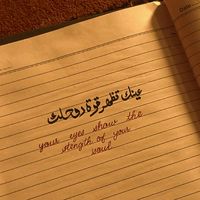 عينك تظهر قوة روحك
your eyes show the
strength of your
soul